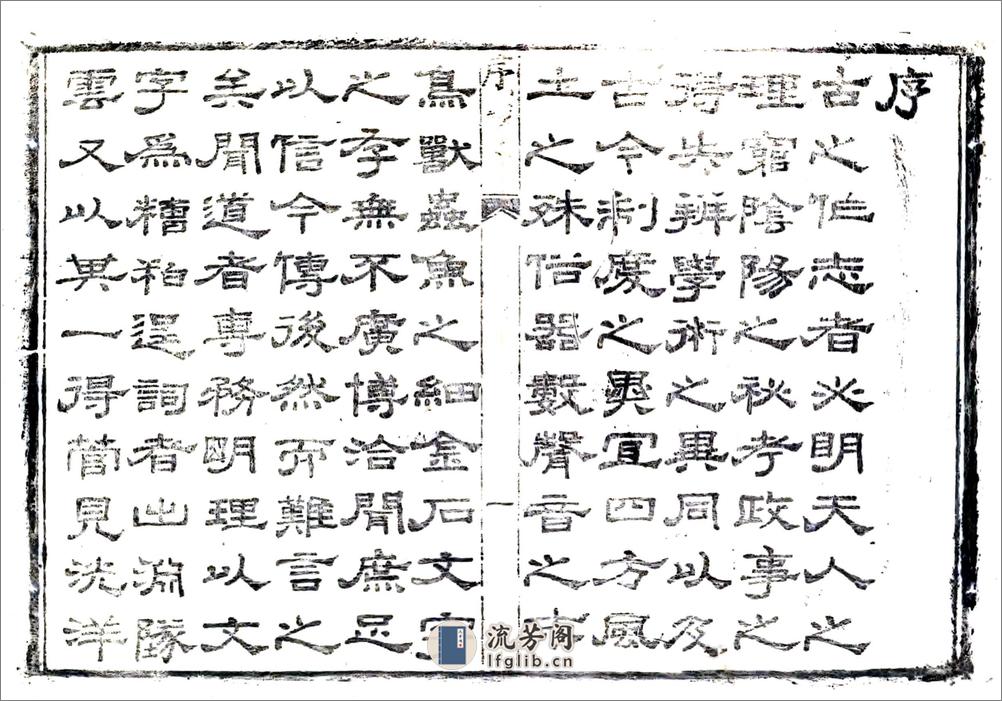 序
古之作志者必明天人之
理窮陰陽之秘考政事之
得失辨學術之異同以及
古今制度之異宜四方風
土之殊俗器數聲音之
序
一
鳥獸蟲魚之細金石文字
之存無不廣博洽聞庶足
以信今傳後然而難言之
矣聞道者專務明理以文
字爲糟粕逞詞者出淵隊
雲又以其一得管見洸洋
流芳阁
lfglib.cn